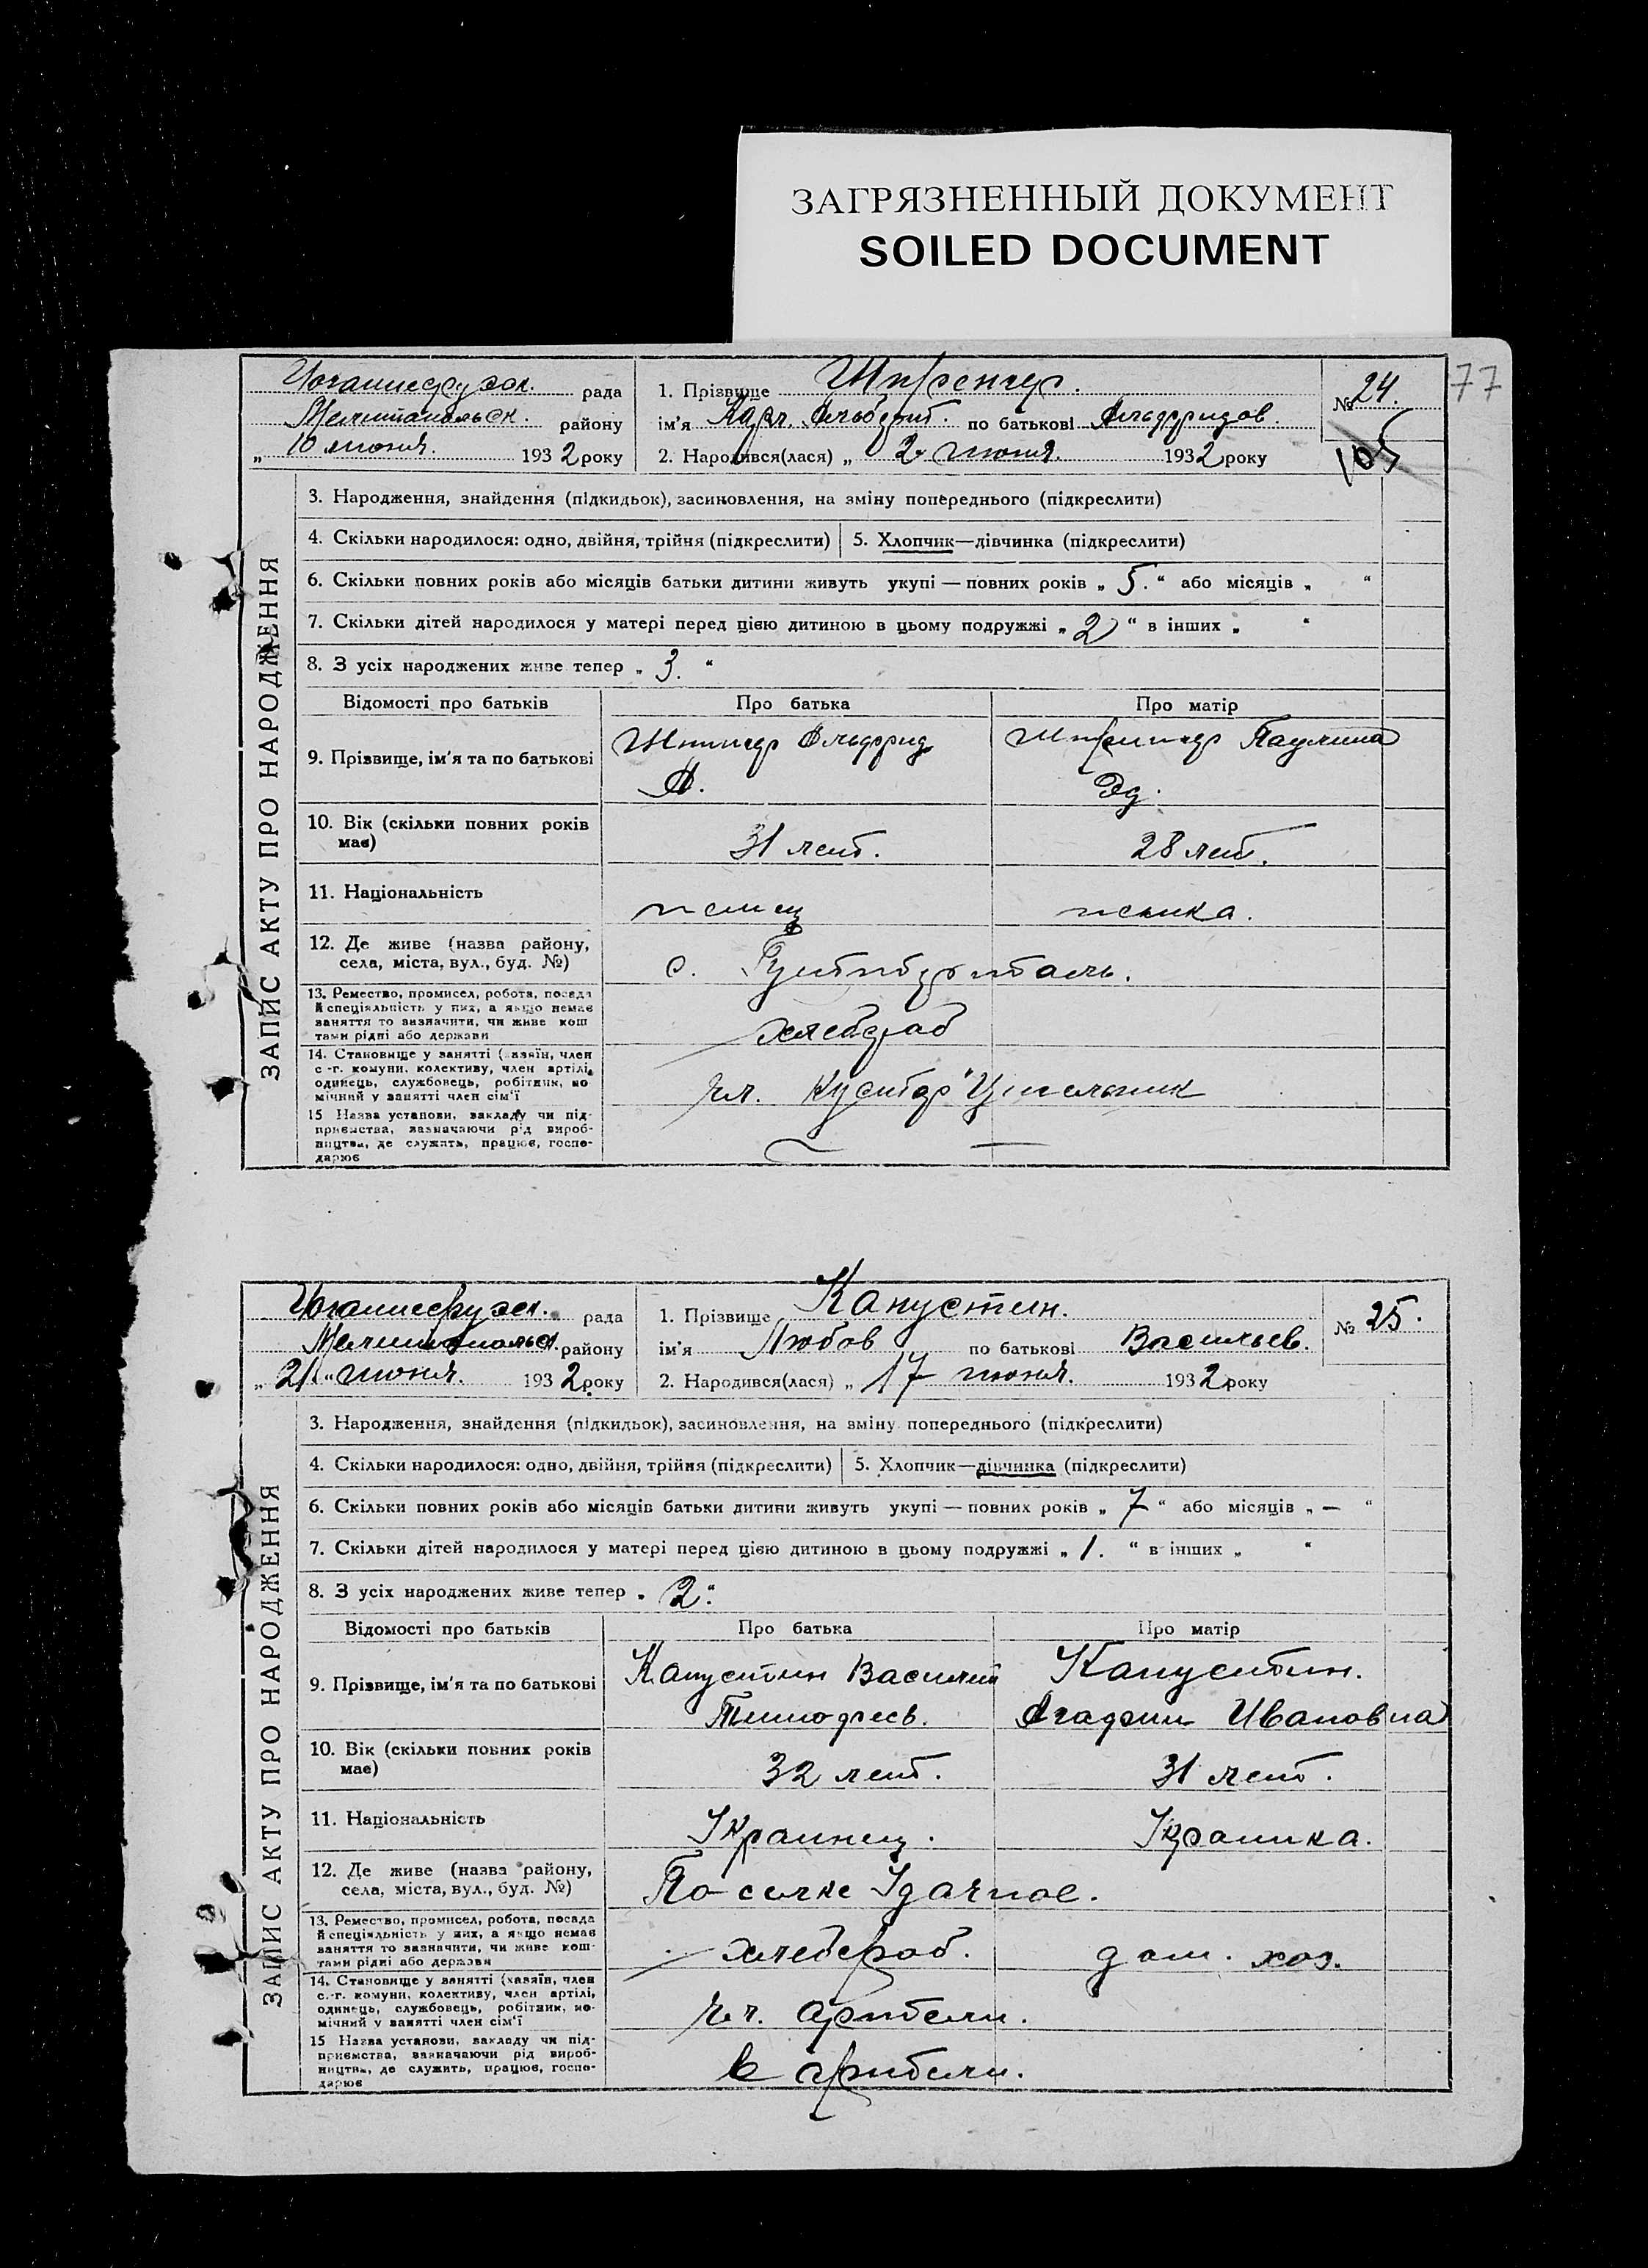 ЗАГРЯЗНЕННЫЙ ДОКУМЕНТ
SOILED DOCUMENT
77
рада
Мелитопольск. району
„ 10 июня. 1932 року
1. Прізвище
ім'я Карл Альберт. по батькові Альфридов.
2. Народився(лася) „ 2 июня. 1932 року
№ 24.
105
ЗАПИС АКТУ ПРО НАРОДЖЕННЯ
3. Народження, знайдення (підкидьок), засиновлення, на зміну попереднього (підкреслити)
4. Скільки народилося: одно, двійня, трійня (підкреслити)
5. Хлопчик—дівчинка (підкреслити)
6. Скільки повних років або місяців батьки дитини живуть укупі — повних років „ 5. “ або місяців „ “
7. Скільки дітей народилося у матері перед цією дитиною в цьому подружжі „ 2 “ в інших „ “
8. З усіх народжених живе тепер „ 3. “
Відомості про батьків Про батька Про матір
9. Прізвище, ім'я та по батькові
Альфрид Паулина
А. Эд.
10. Вік (скільки повних років має)
31 лет. 28 лет.
11. Національність
немец немка.
12. Де живе (назва району, села, міста, вул., буд. №)
с.
13. Ремество, промисел, робота, посада й спеціяльність у них, а якщо немає заняття то зазначити, чи живе коштами рідні або держави
хлебораб
14. Становище у занятті (хазяїн, член с.-г. комуни, колективу, член артілі, одинець, службовець, робітник, помічний у занятті член сім'ї
чл.
15 Назва установи, закладу чи підприємства, зазначаючи рід виробництва, де служить, працює, господарює
рада
Мелитопольск. району
„ 21 “ июня. 1932 року
1. Прізвище Капустин.
ім'я Любов по батькові Васильев.
2. Народився(лася) „ 17 июня. 1932 року
№ 25.
ЗАПИС АКТУ ПРО НАРОДЖЕННЯ
3. Народження, знайдення (підкидьок), засиновлення, на зміну попереднього (підкреслити)
4. Скільки народилося: одно, двійня, трійня (підкреслити)
5. Хлопчик—дівчинка (підкреслити)
6. Скільки повних років або місяців батьки дитини живуть укупі — повних років „ 7 “ або місяців „ — “
7. Скільки дітей народилося у матері перед цією дитиною в цьому подружжі „ 1. “ в інших „ “
8. З усіх народжених живе тепер „ 2. “
Відомості про батьків Про батька Про матір
9. Прізвище, ім'я та по батькові
Капустин Василий Капустин.
Тимофеев. Агафии Ивановна
10. Вік (скільки повних років має)
32 лет. 31 лет.
11. Національність
Украинец. Украинка.
12. Де живе (назва району, села, міста, вул., буд. №)
По селке Удачное.
13. Ремество, промисел, робота, посада й спеціяльність у них, а якщо немає заняття то зазначити, чи живе коштами рідні або держави
хлебераб. дом. хоз.
14. Становище у занятті (хазяїн, член с.-г. комуни, колективу, член артілі, одинець, службовець, робітник, помічний у занятті член сім'ї
чл. артели.
15 Назва установи, закладу чи підприємства, зазначаючи рід виробництва, де служить, працює, господарює
в артели.